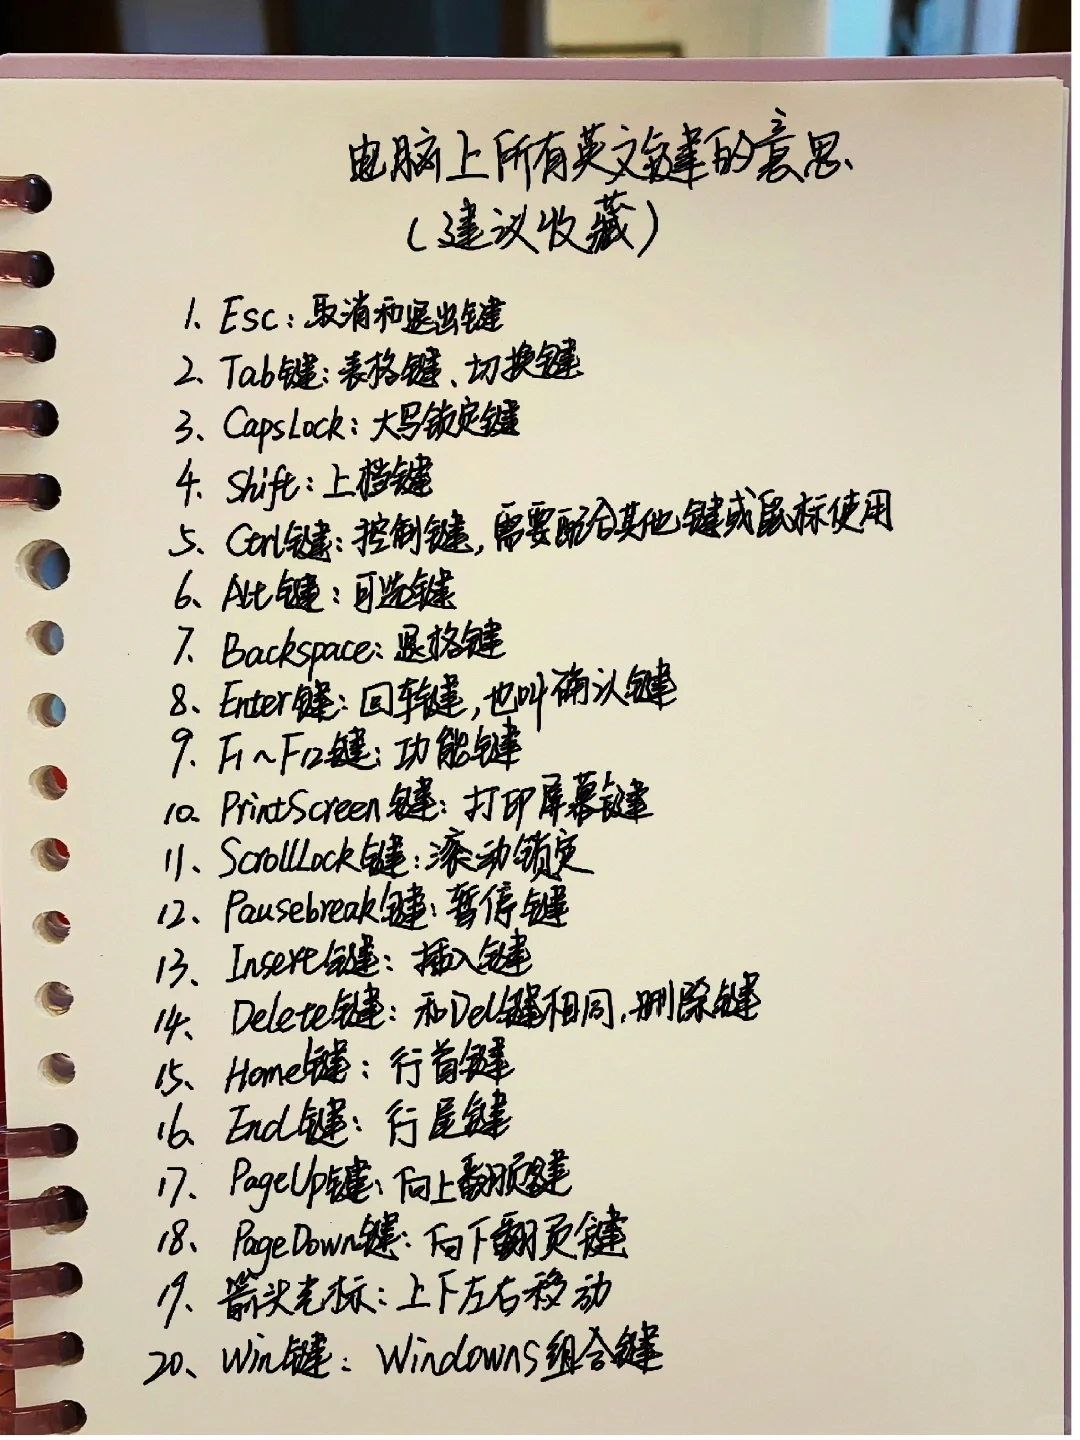 电脑上所有英文键的意思、
(建议收藏)
1、Esc:取消和退出键
2、Tab键:表格键、切换键
3、CapsLock:大写锁定键
4、Shift:上档键
5、Ctrl键:控制键,需要配合其他键或鼠标使用
6、Alt键:可选键
7、Backspace:退格键
8、Enter键:回车键,也叫确认键
9、F1~F12键:功能键
10、PrintScreen键:打印屏幕键
11、ScrollLock键:滚动锁定
12、Pausebreak键:暂停键
13、Insert键:插入键
14、Delete键:和Del键相同,删除键
15、Home键:行首键
16、End键:行尾键
17、PageUp键:向上翻页键
18、PageDown键:向下翻页键
19、箭头光标:上下左右移动
20、Win键:Windowns组合键